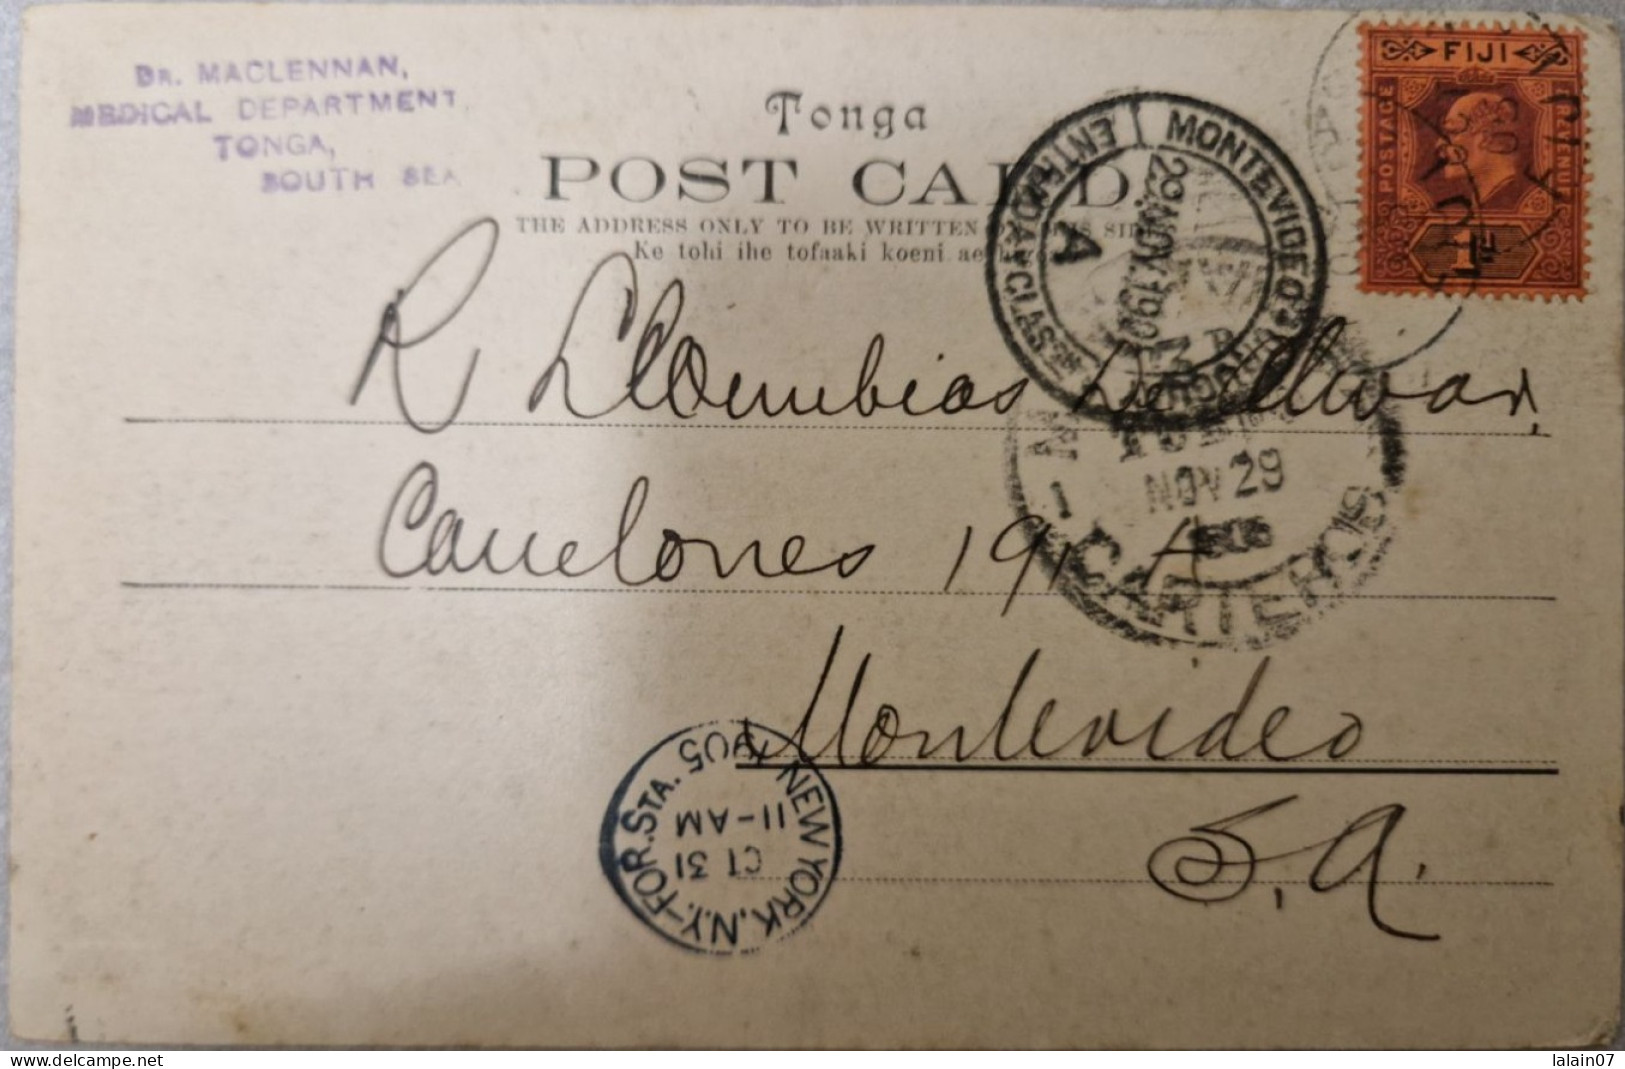 DR. MACLENNAN,
MEDICAL DEPARTMENT,
TONGA,
SOUTH SEA
Tonga
POST CARD
THE ADDRESS ONLY TO BE WRITTEN ON THIS SIDE
Ke tohi ihe tofaaki koeni ae
FIJI
POSTAGE
REVENUE
1d
MONTEVIDEO
ENTRADA
A
29.NOV.190
R Llombias de Alivar,
NOV 29
CARTEROS
Canelones 191 A
Montevideo
S.A.
NEW YORK, N.Y.-FOR. STA. 1905
CT 31
11-AM
lalain07